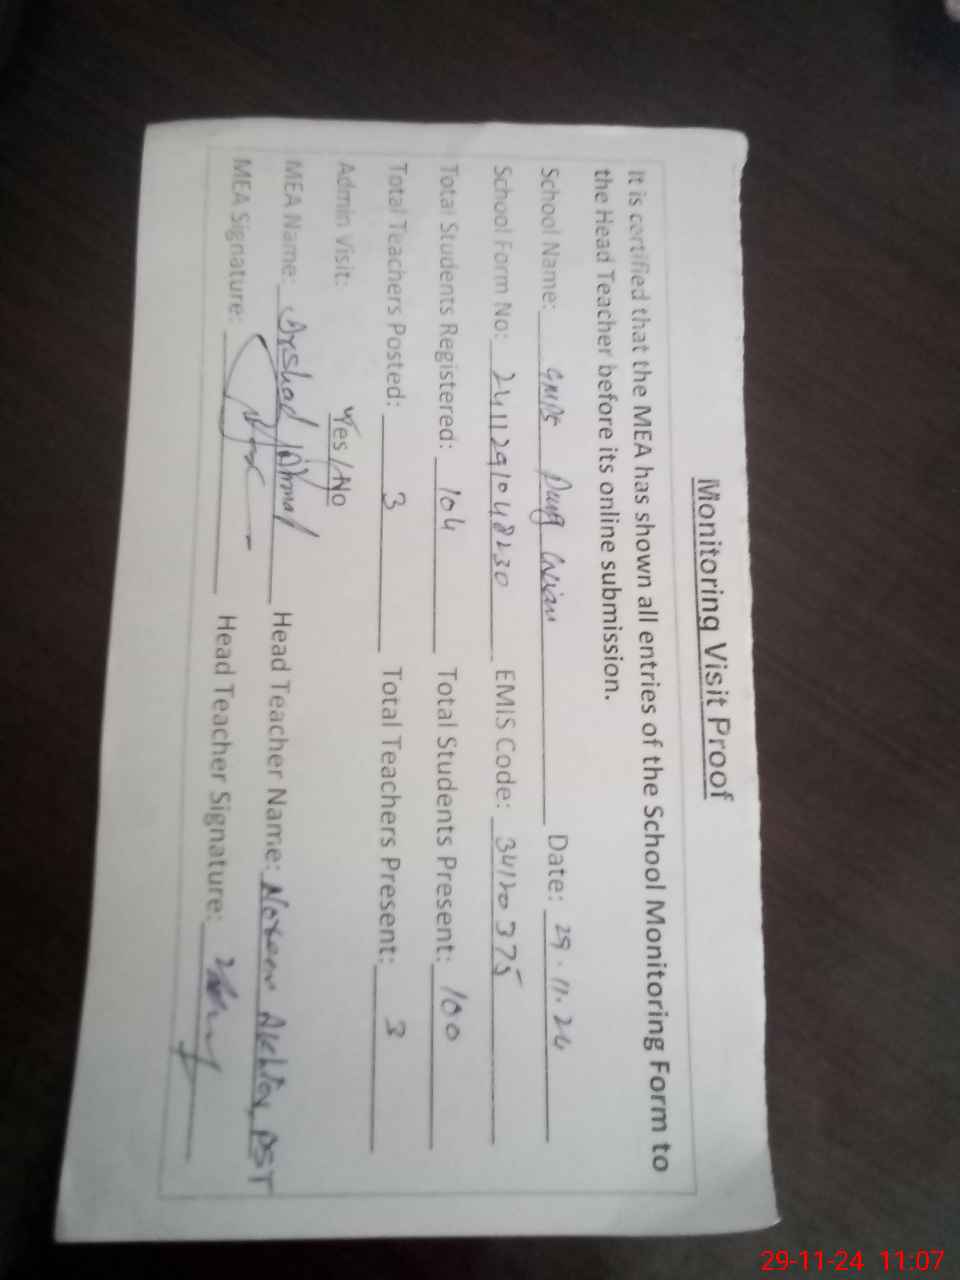 Monitoring Visit Proof
It is certified that the MEA has shown all entries of the School Monitoring Form to
the Head Teacher before its online submission.
School Name: GMPS Date: 29.11.24
School Form No: 2411291048230 EMIS Code: 34120375
Total Students Registered: 104 Total Students Present: 100
Total Teachers Posted: 3 Total Teachers Present: 3
Admin Visit: Yes / No
MEA Name: Arshad Head Teacher Name: Noreen Akhtar, PST
MEA Signature: Head Teacher Signature:
29-11-24 11:07